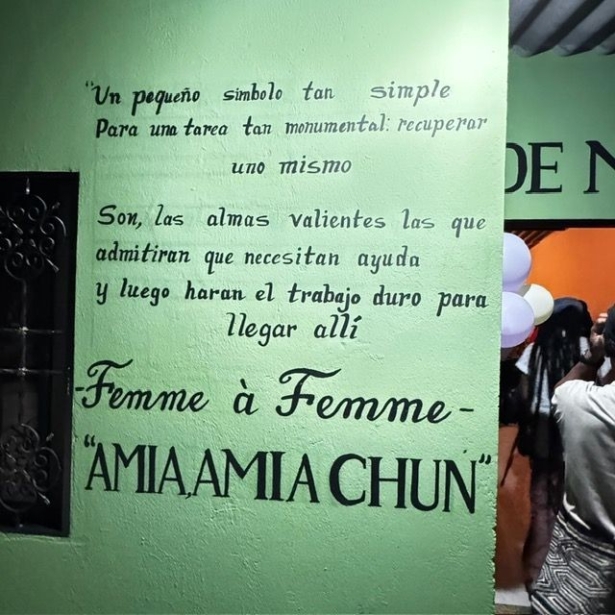 "Un pequeño simbolo tan simple
Para una tarea tan monumental: recuperar
uno mismo
Son, las almas valientes las que
admitiran que necesitan ayuda
y luego haran el trabajo duro para
llegar allí
-Femme à Femme-
"AMIA,AMIA CHUN"
DE N